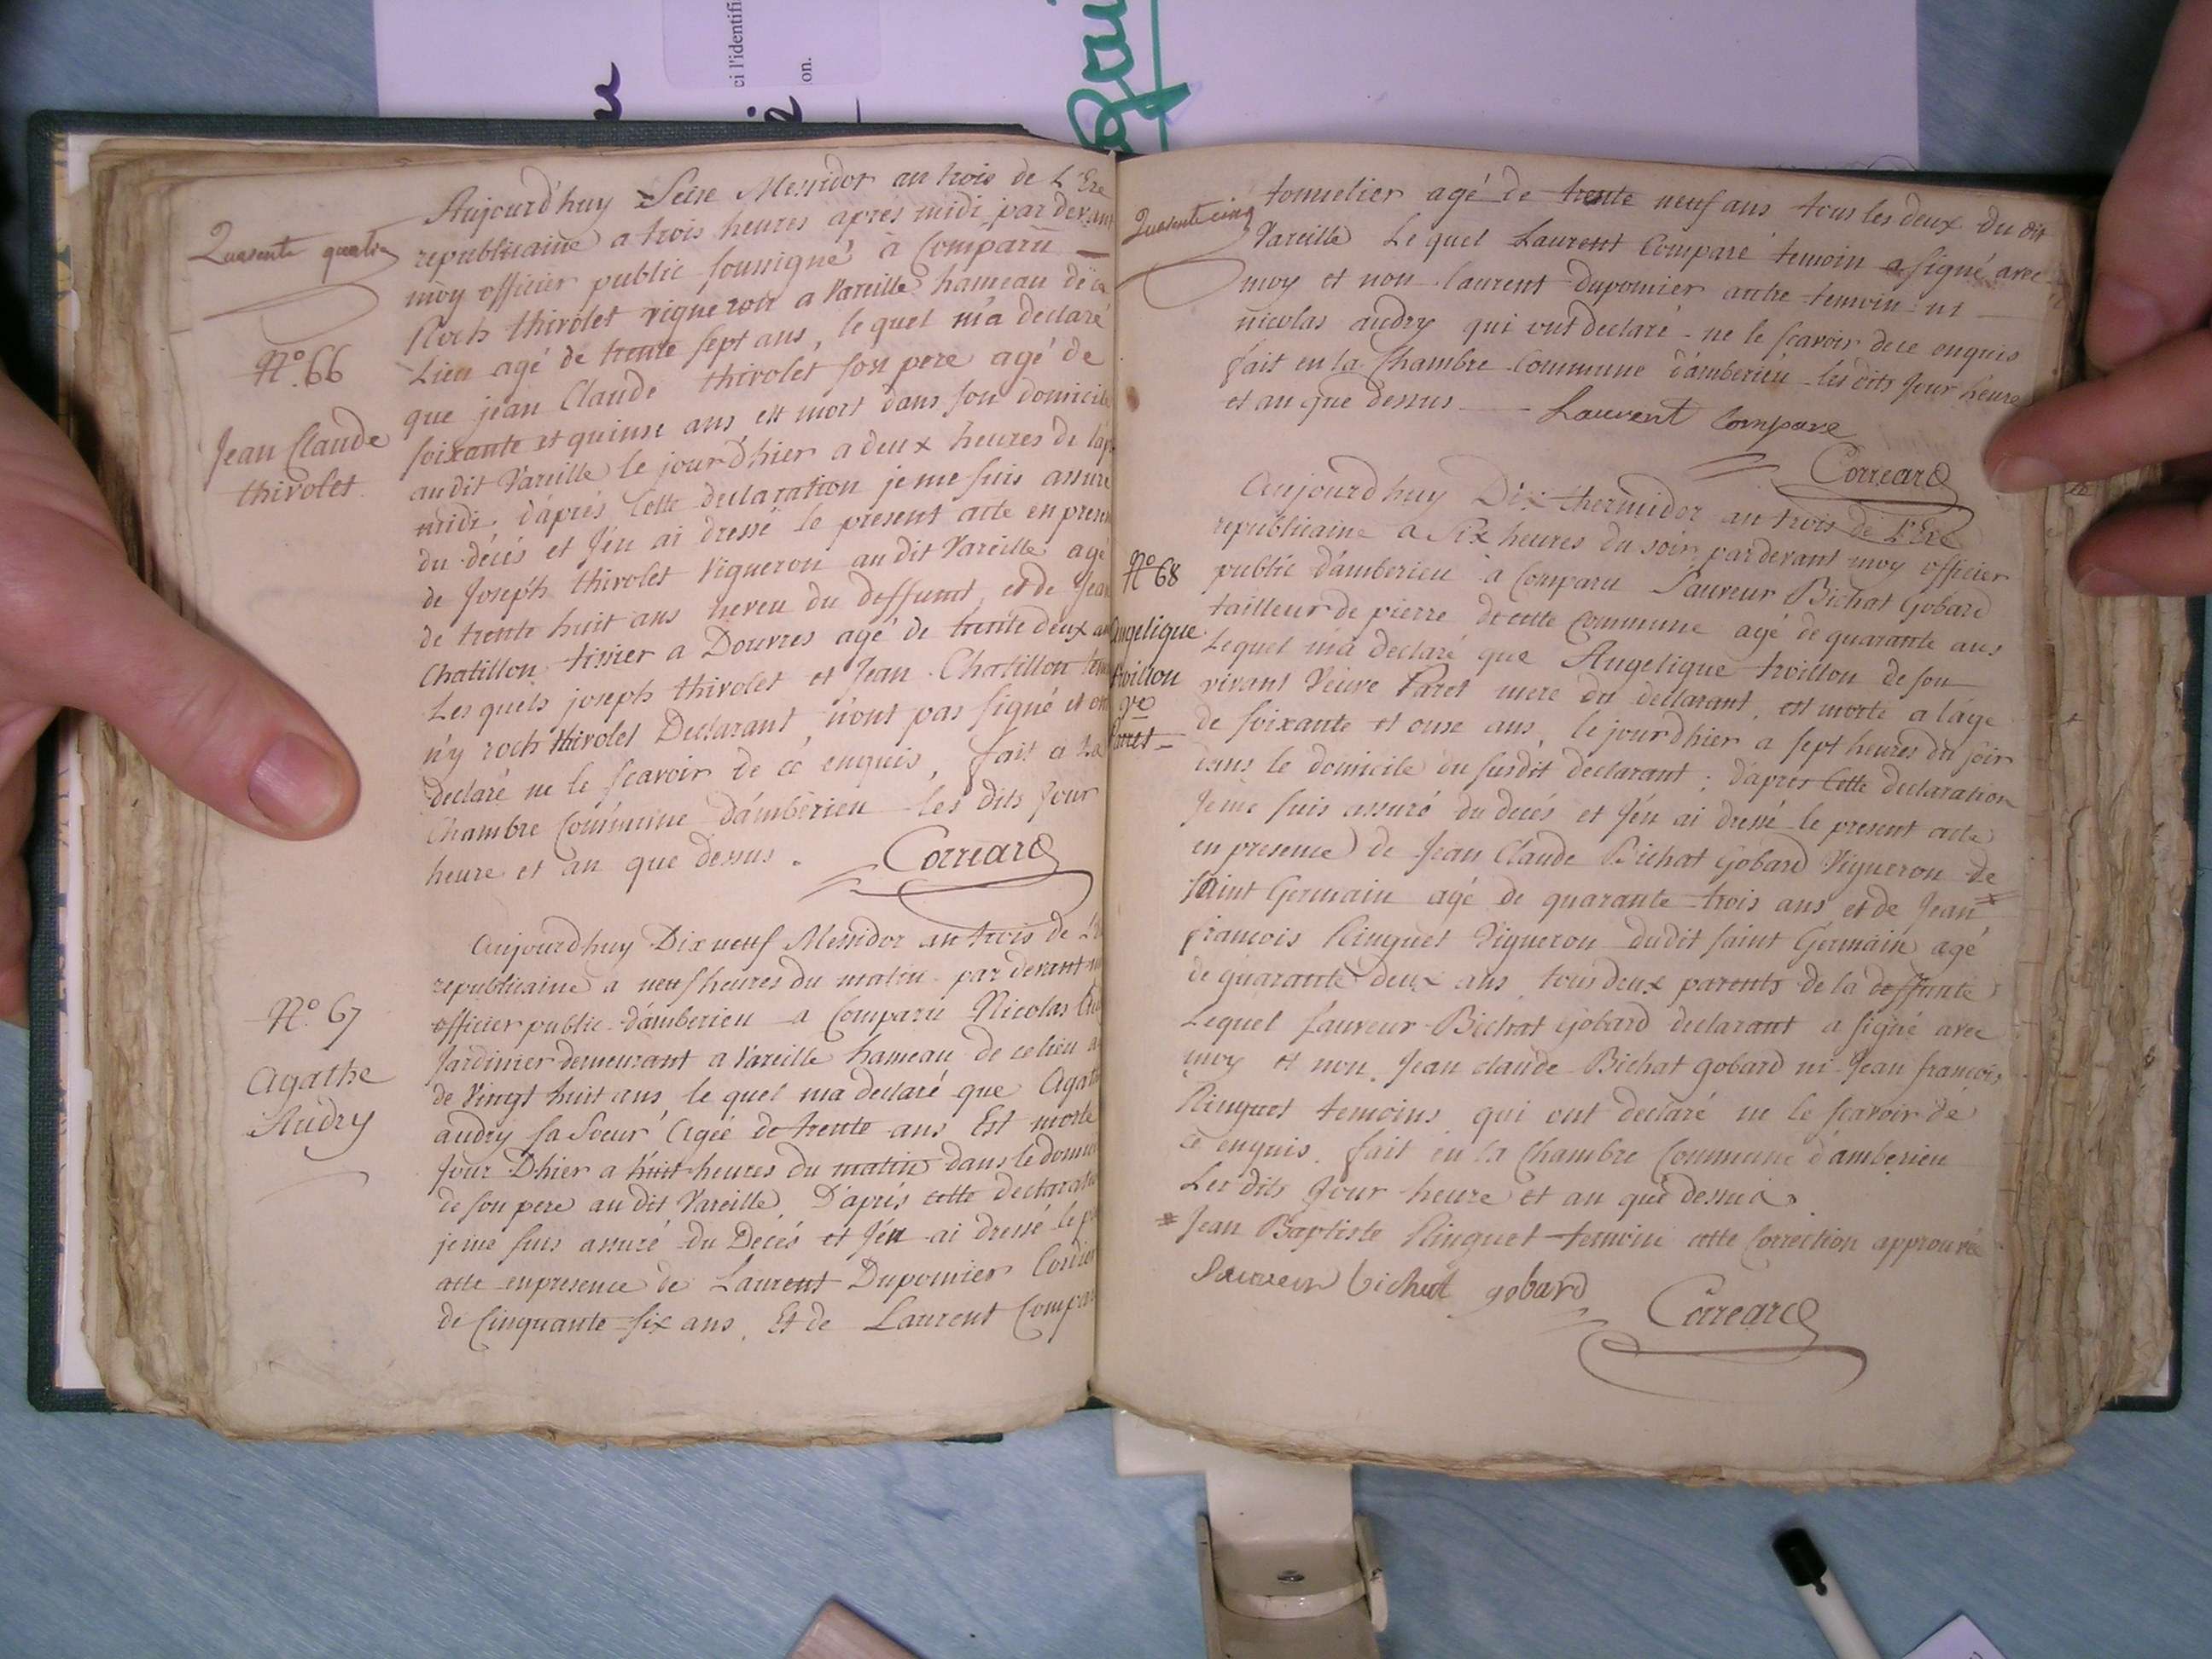 ci l'identifi
on.
Quarente quatre
Aujourd'huy Seise Messidor an trois de L'Ere
republicaine a trois heures aprés midi par devant
moy officier public soussigné à Comparü
Roch thivolet vigneron a Vareille hameau de ce
Lieu agé de trente sept ans, lequel m'a declaré
que jean Claude thivolet son pere agé de
soixante et quinse ans est mort dans son domicile
audit Vareille le jourd'hier a deux heures de l'ap
midi. d'aprés Cette declaration je me suis assuré
du décés et J'en ai dressé le present acte en presen
de Joseph thivolet Vigneron audit Vareille agé
de trente huit ans neveu du deffunt, et de Jean
Chatillon tissier a Douvres agé de trente deux an
Lesquels joseph thivolet et Jean Chatillon tem
n'y roch thivolet Declarant n'ont pas signé et on
declaré ne le scavoir de ce enquis, fait a La
Chambre Commune d'amberieu les dits Jour
heure et an que dessus.
Correard
N.º 66
Jean Claude
thivolet
Aujourdhuy Dix neuf Messidor an trois de L'E
republicaine a neuf heures du matin par devant m
officier public d'amberieu a Comparü Nicolas Au
Jardinier demeurant a Vareille hameau de ce lieu a
de Vingt huit ans le quel ma declaré que Agath
audry sa Soeur Agée de trente ans Est morte
Jour D'hier a huit heures du matin dans le domici
de son pere au dit Vareille. D'aprés cette declarati
je me suis assuré du Décés et J'en ai dressé le pr
acte en presence de Laurent Duponier Cordier
de Cinquante six ans, Et de Laurent Compar
N.º 67
Agathe
Audry
Quarente cinq
tonnelier agé de trente neuf ans tous les deux du dit
Vareille Lequel Laurent Comparé temoin a signé avec
moy et non Laurent duponier autre temoin ni
nicolas audry qui ont declaré ne le scavoir de ce enquis
fait en la Chambre Commune d'amberieu les dits Jour heure
et an que dessus
Laurent Compare
Correard
Aujourdhuy Dix thermidor an trois de L'Ere
republicaine a Six heures du soir par devant moy officier
public d'amberieu a Comparu Sauveur Bichat Gobard
tailleur de pierre de cette Commune agé de quarante ans
Lequel m'a declaré que Angelique troillon de son
vivant Veuve Paret mere du declarant, est morte a l'age
de soixante et onse ans, le jourdhier a sept heures du soir
dans le domicile du susdit declarant; d'apres Cette declaration
Je me suis assuré du decés et J'en ai dressé le present acte
en presence de Jean Claude Bichat Gobard Vigneron de
Saint Germain agé de quarante trois ans et de Jean #
francois Ringuet Vigneron dudit saint Germain agé
de quarante deux ans tous deux parents de la deffunte
Lequel Sauveur Bichat Gobard declarant a signé avec
moy et non Jean claude Bichat gobard ni Jean francois
Ringuet temoins qui ont declaré ne le scavoir de
ce enquis. fait en la Chambre Commune d'amberieu
Les dits Jour heure et an que dessus.
# Jean Baptiste Ringuet temoin cette Correction approuvée
Sauveur bichat gobard
Correard
N.º 68
Angelique
troillon
Vᵉ
Paret